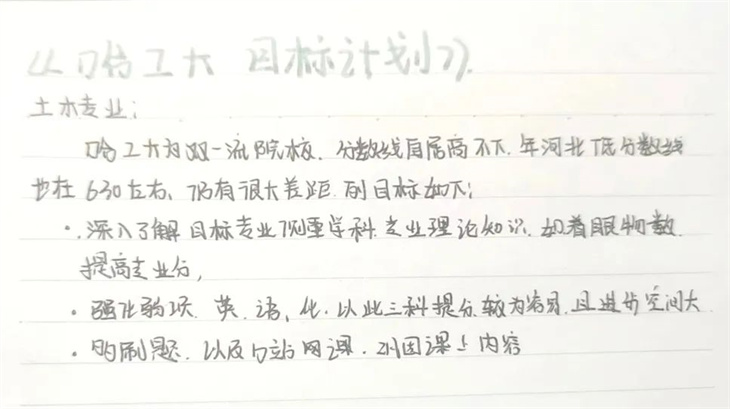 《哈工大 目标计划》.
土木专业:
哈工大为双一流院校. 分数线自居高不下. 年河北低分数线
也在 630左右, 仍有很大差距. 列目标如下:
·深入了解目标专业侧重学科.专业理论知识. 如着眼物数.
提高专业分,
· 强化弱项. 英. 语, 化. 以此三科提分较为容易. 且进步空间大
· 刷题. 以及网课. 巩固课上内容